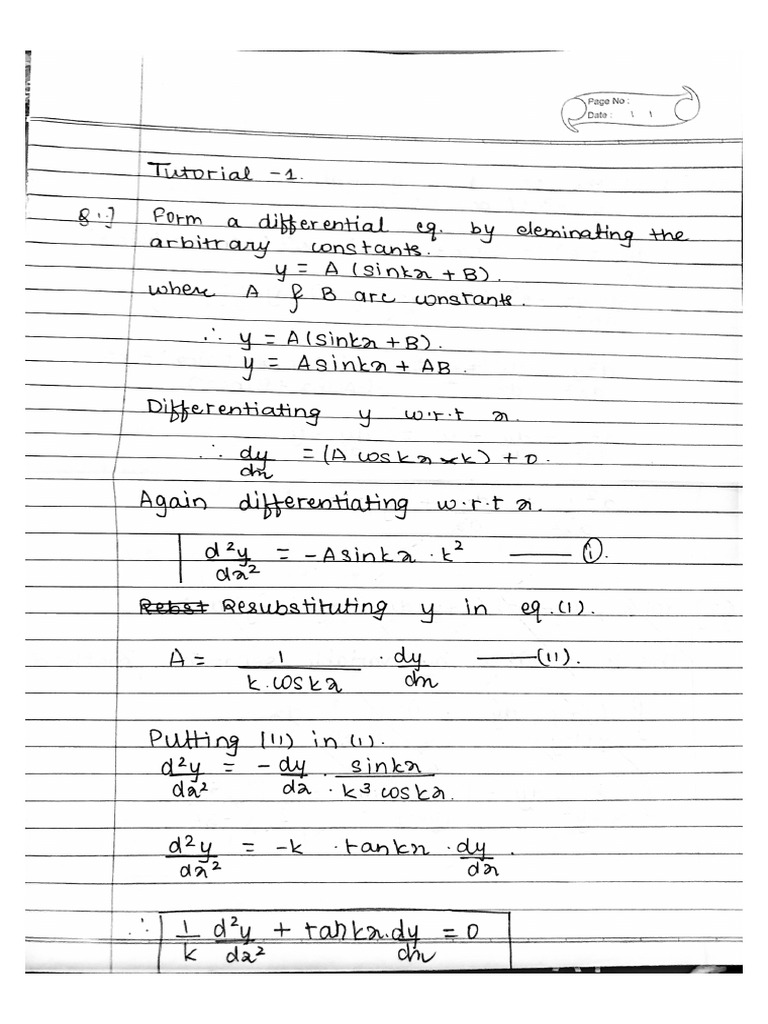 Page No :
Date : \ \
Tutorial -1.
Q.] Form a differential eq. by eleminating the
arbitrary constants.
y = A (sinkx + B).
where A & B are constants.
∴ y = A(sinkx + B).
y = Asinkx + AB.
Differentiating y w.r.t x.
∴ dy/dx = (A coskx × k) + 0.
Again differentiating w.r.t x.
d²y/dx² = -Asinkx · k² —— ①.
Rebst Resubstituting y in eq.(1).
A = 1/k.coskx · dy/dx ——(11).
Putting (11) in (1).
d²y/dx² = -dy/dx · sinkx/· k³ coskx.
d²y/dx² = -k · tankx · dy/dx.
∴ 1/k d²y/dx² + tankx.dy/dx = 0